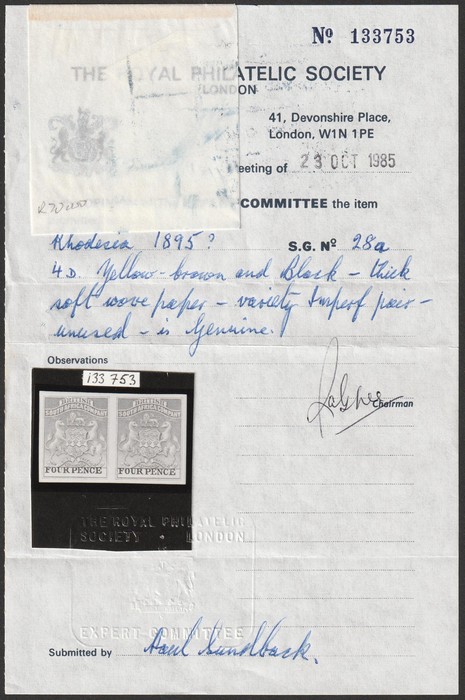 Nº 133753
THE ROYAL PHILATELIC SOCIETY
LONDON
41, Devonshire Place,
London, W1N 1PE
eeting of 23 OCT 1985
COMMITTEE the item
Rhodesia 1895? S.G. Nº 28a
4D. Yellow-brown and Black – thick
soft wove paper – variety Imperf pair –
unused – is Genuine.
Observations
133753
Chairman
SOUTH AFRICA COMPANY SOUTH AFRICA COMPANY
FOUR PENCE FOUR PENCE
THE ROYAL PHILATELIC
SOCIETY LONDON
EXPERT COMMITTEE
Submitted by Paul Sundback.